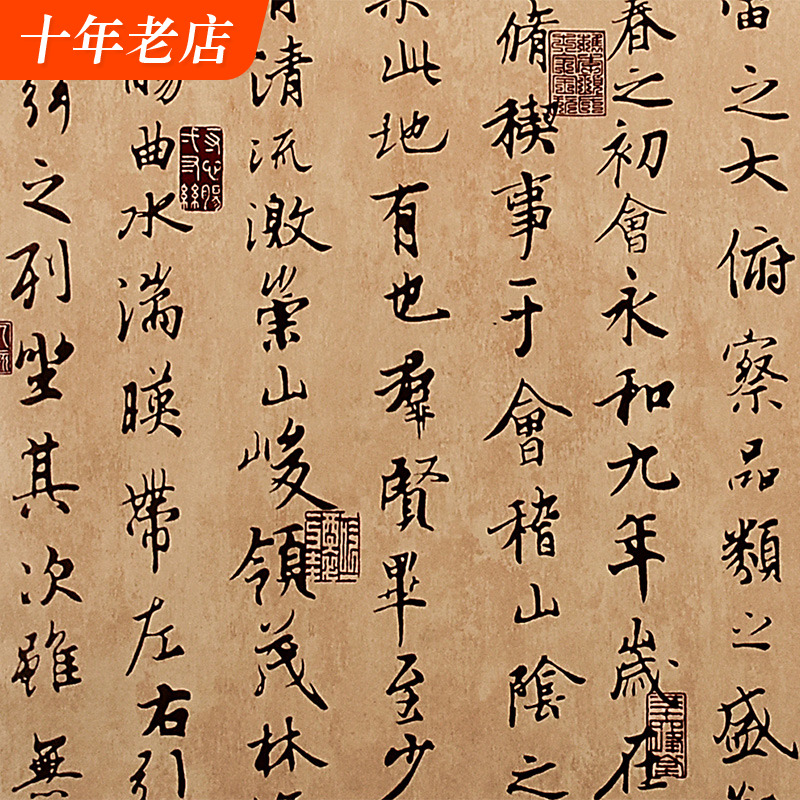 十年老店
之大俯察品類之盛
春之初會永和九年歲在
脩稧事于會稽山陰之
此地有也羣賢畢至少
清流激崇山峻領茂林
觴曲水湍暎帶左右引
之列坐其次雖無